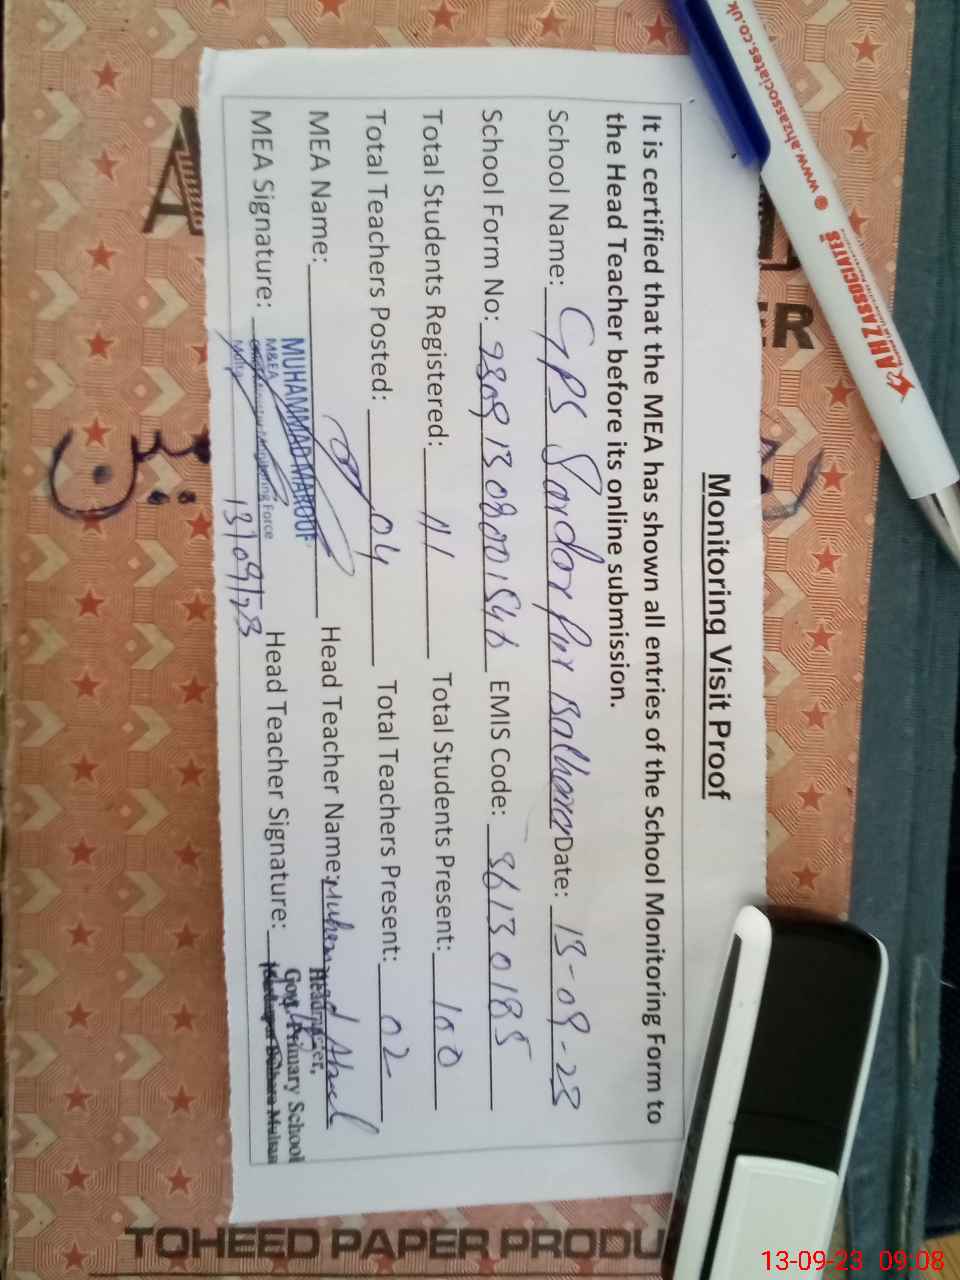 Monitoring Visit Proof
It is certified that the MEA has shown all entries of the School Monitoring Form to
the Head Teacher before its online submission.
School Name: GPS Sardar Pur Balhana Date: 13-09-23
School Form No: 2309130800154 EMIS Code: 36130185
Total Students Registered: 111 Total Students Present: 100
Total Teachers Posted: 04 Total Teachers Present: 02
MEA Name: MUHAMMAD MAROOF Head Teacher Name: Muhammad
M&EA Monitoring Force
MEA Signature: 13/09/23 Head Teacher Signature:
Govt. Primary School
Multan
www.ahzassociates.co.uk
AHZASSOCIATES
TOHEED PAPER PRODU
13-09-23 09:08